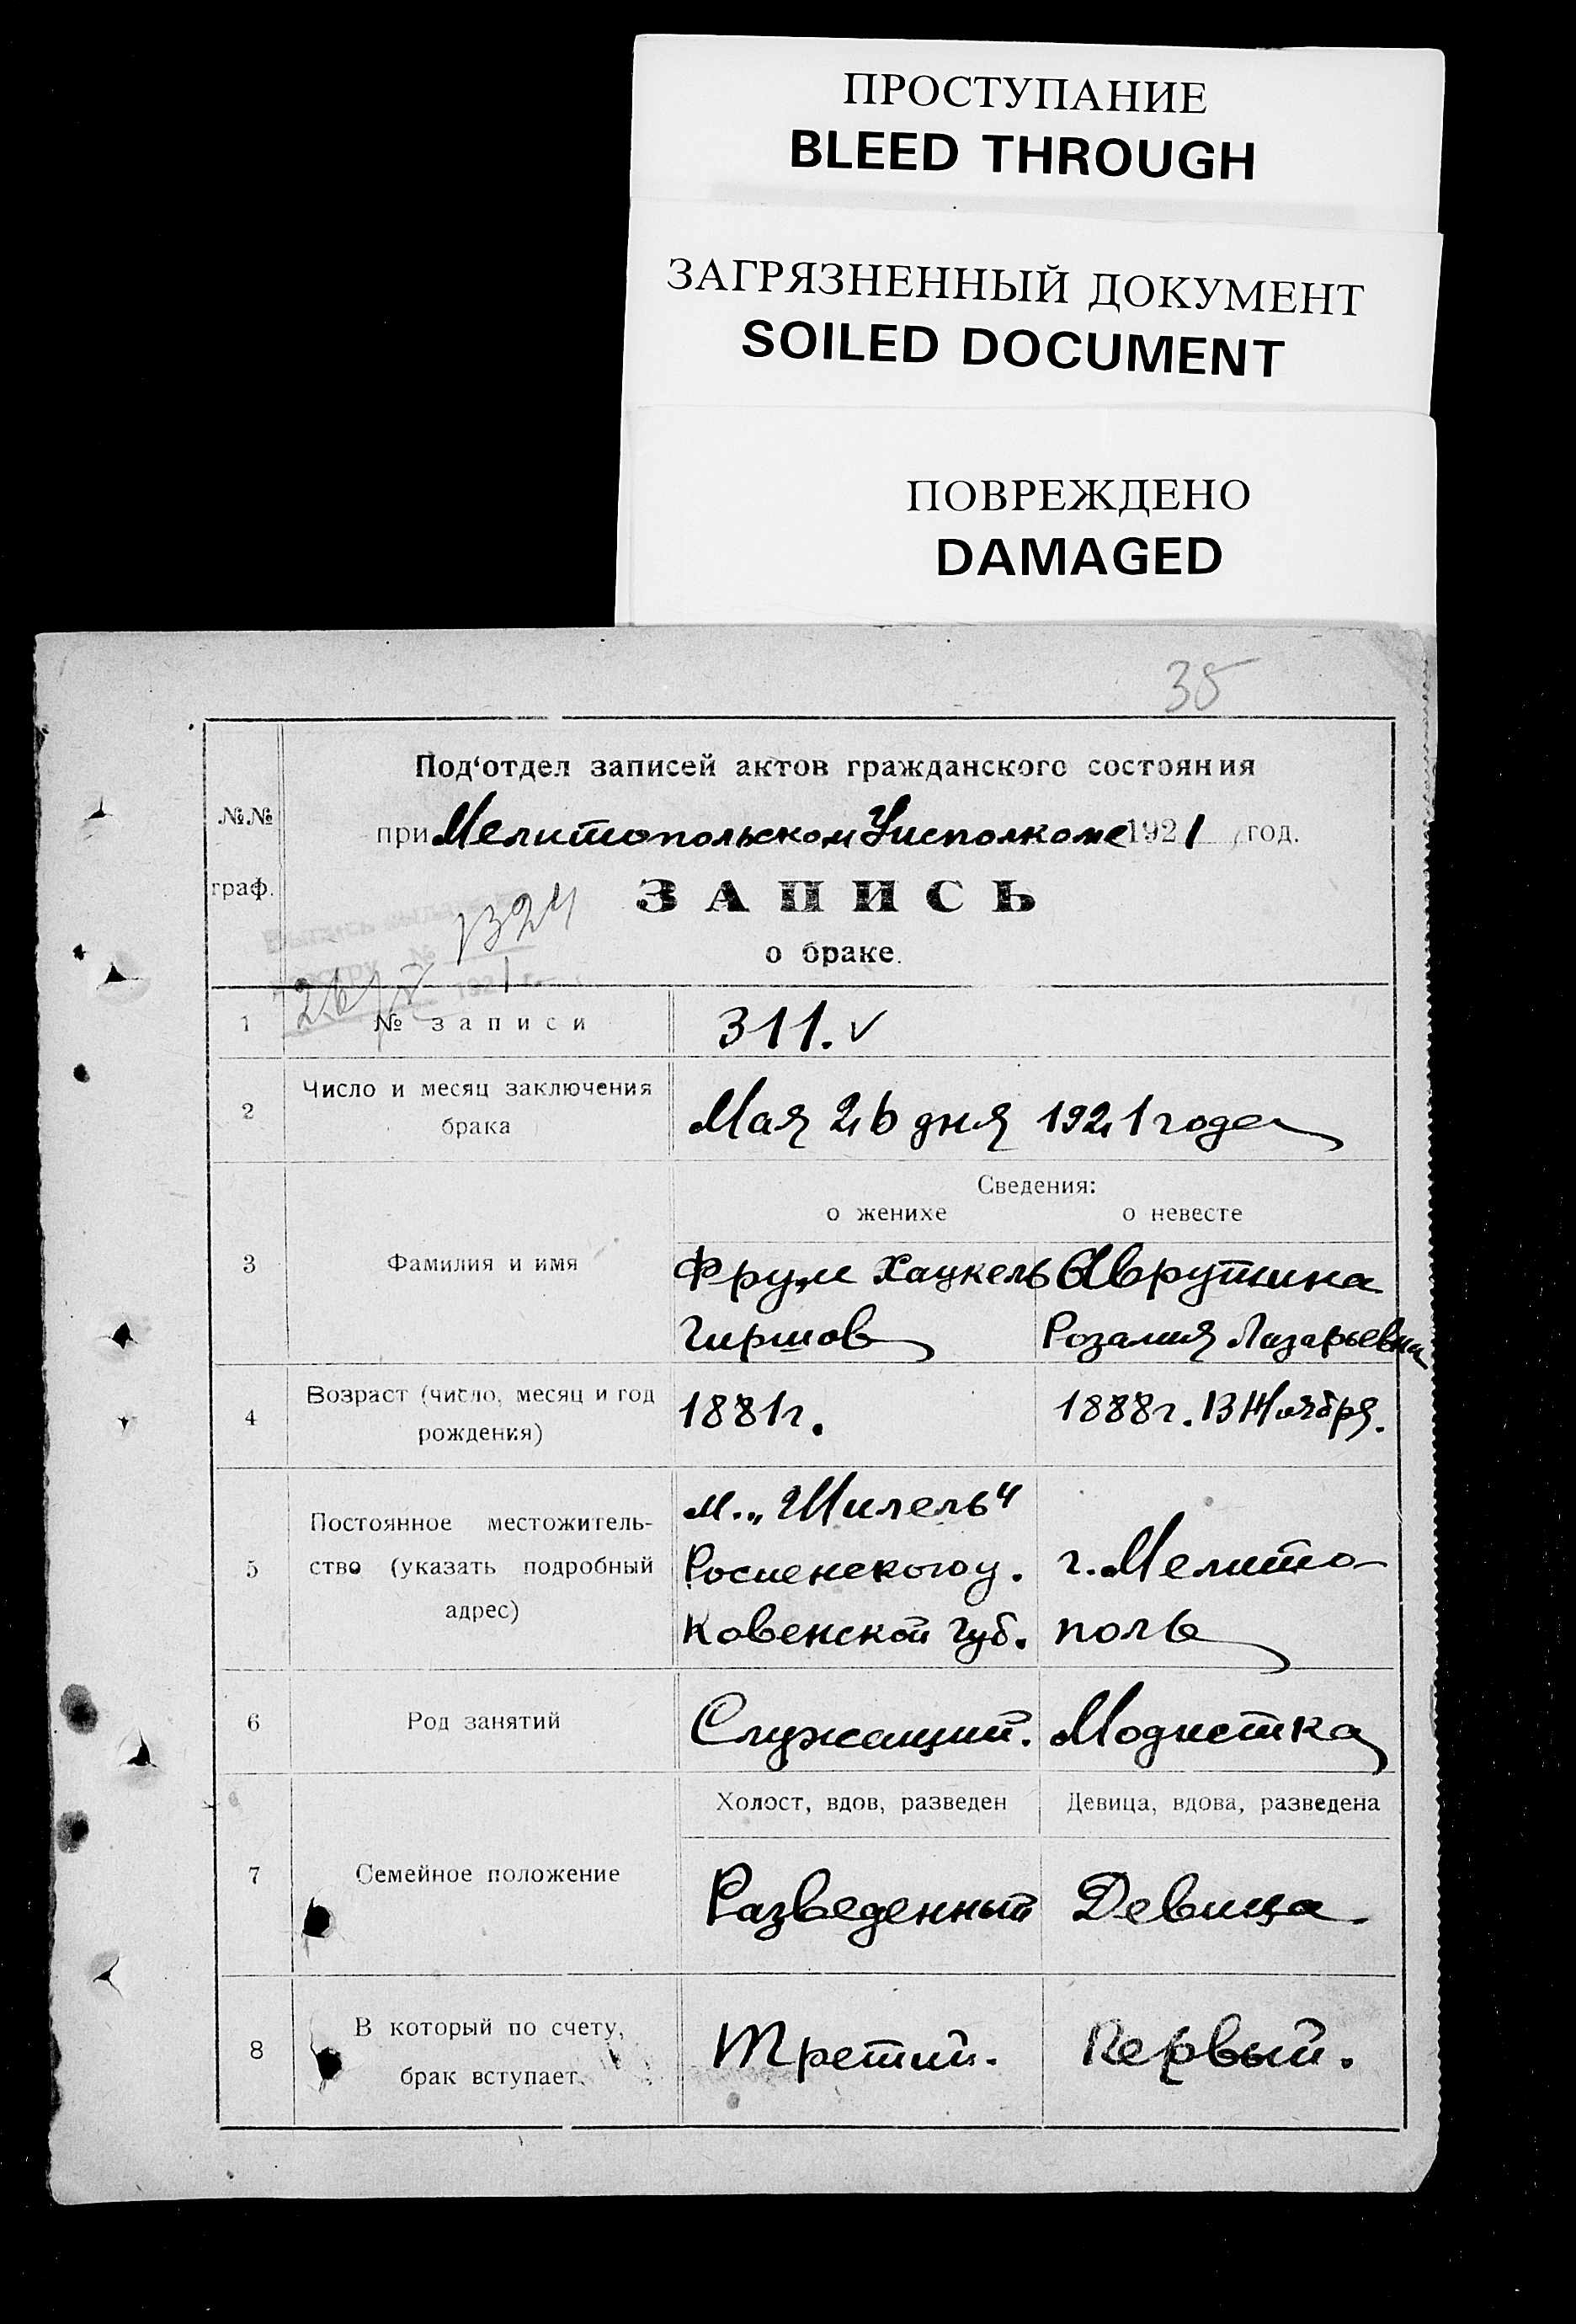 ПРОСТУПАНИЕ
BLEED THROUGH
ЗАГРЯЗНЕННЫЙ ДОКУМЕНТ
SOILED DOCUMENT
ПОВРЕЖДЕНО
DAMAGED
35
Под‘отдел записей актов гражданского состояния
№№ граф.
при Мелитопольском Уисполкоме 1921 год.
ЗАПИСЬ
о браке.
№ 1324
1921 г.
1 № записи 311. ✓
2 Число и месяц заключения брака
Мая 26 дня 1921 года
Сведения:
о женихе о невесте
3 Фамилия и имя
Фрум Хацкель
Гиршов
Аврутина
Розалия Лазарьевна
4 Возраст (число, месяц и год
рождения)
1881г.
1888г. 13 Ноября.
5 Постоянное местожитель-
ство (указать подробный
адрес)
м. „Шилель“
Росиенского у.
Ковенской губ.
г. Мелито-
поль
6 Род занятий
Служащий. Модистка
Холост, вдов, разведен Девица, вдова, разведена
7 Семейное положение
Разведенный Девица
8 В который по счету,
брак вступает.
Третий. Первый.